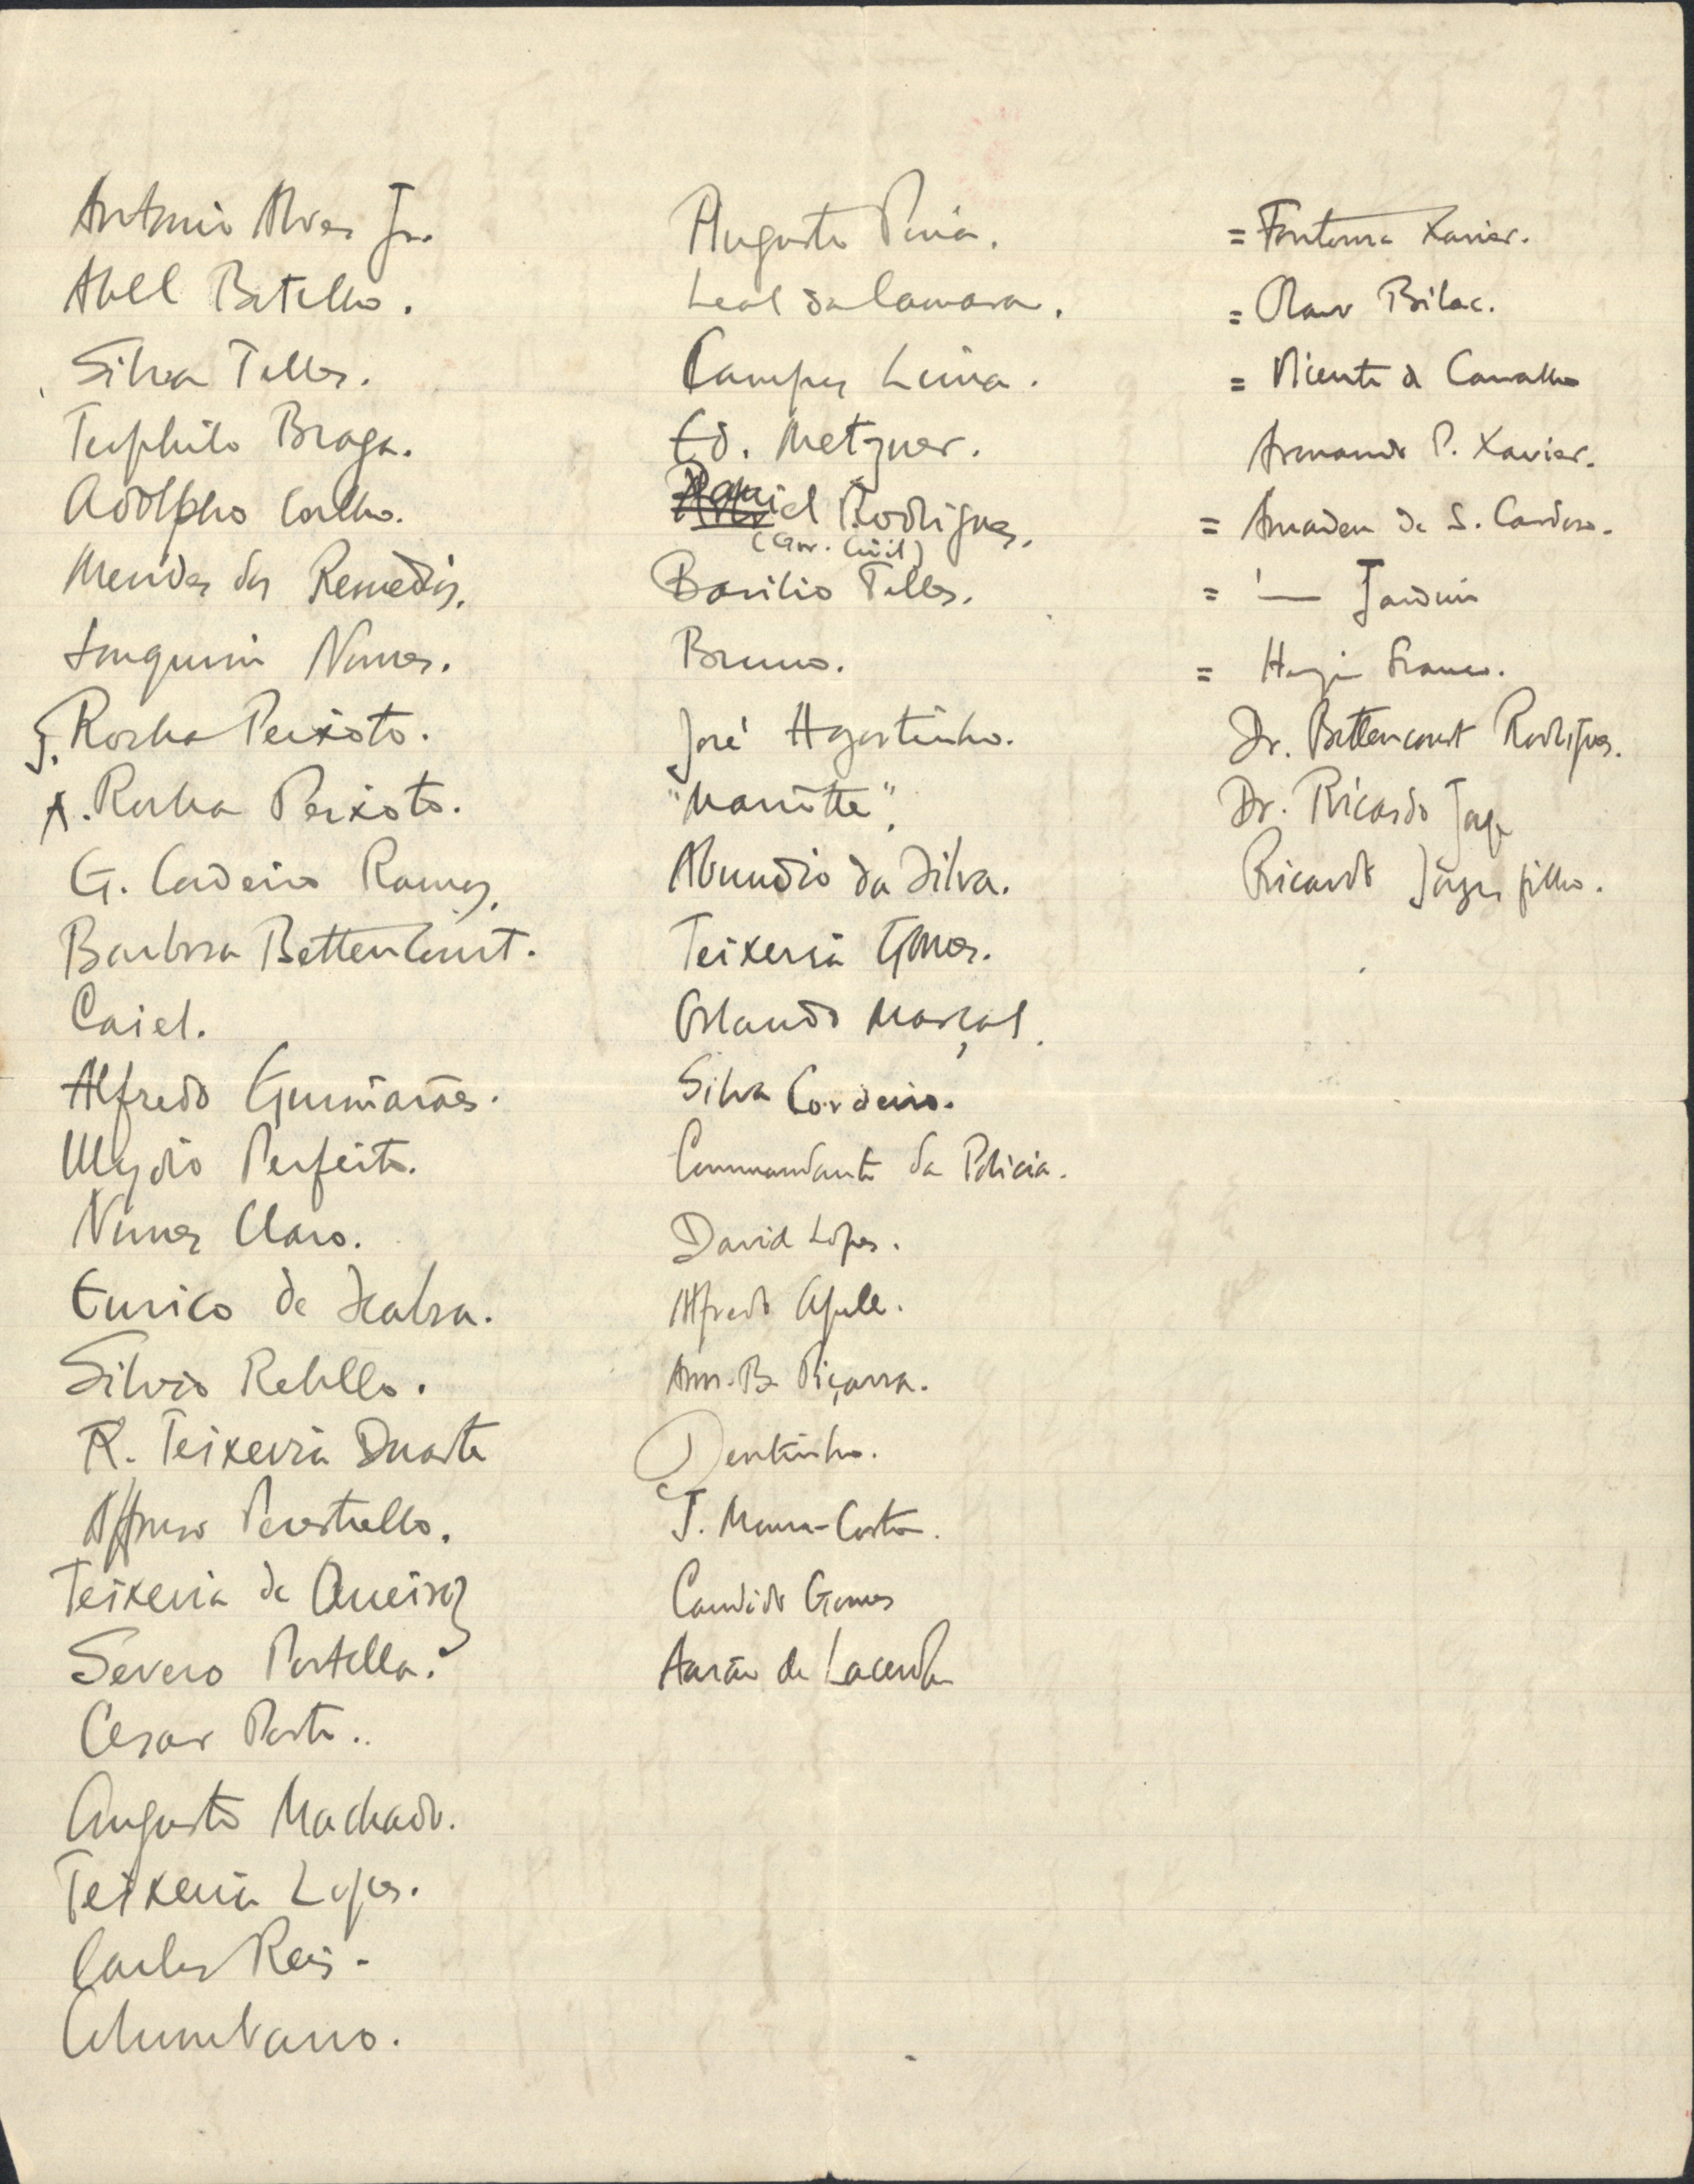 Antonio Alves Jr.
Abel Botelho.
Silva Telles.
Teophilo Braga.
Adolpho Coelho.
Mendes dos Remedios.
Joaquim Nunes.
J. Rocha Peixoto.
A. Rocha Peixoto.
G. Cordeiro Ramos.
Barbosa Bettencourt.
Caiel.
Alfredo Guimarães.
Ulysio Perfeito.
Nunes Claro.
Eurico de Seabra.
Silvio Rebello.
R. Teixeira Duarte
Affonso Perestrello.
Teixeira de Queiroz
Severo Portella.
Cesar Porto..
Augusto Machado.
Teixeira Lopes.
Carlos Reis.
Columbano.
Augusto Pina.
Leal da Camara.
Campos Lima.
Ed. Metzner.
Daniel Rodrigues.
(Gov. Civil)
Basilio Telles.
Bruno.
José Agostinho.
"Mariotte".
Abundio da Silva.
Teixeira Gomes.
Orlando Marçal.
Silva Cordeiro.
Commandante da Policia.
David Lopes.
Alfredo Apell.
Ann. B. Piçarra.
Dentinho.
J. Moura-Costa.
Candido Gomes
Aarão de Lacerda
= Fontoura Xavier.
= Olavo Bilac.
= Vicente de Carvalho
Armando P. Xavier.
= Amadeu de S. Cardoso.
= — Jardim
= Franco.
Dr. Bettencourt Rodrigues.
Dr. Ricardo Jorge
Ricardo Jorge filho.